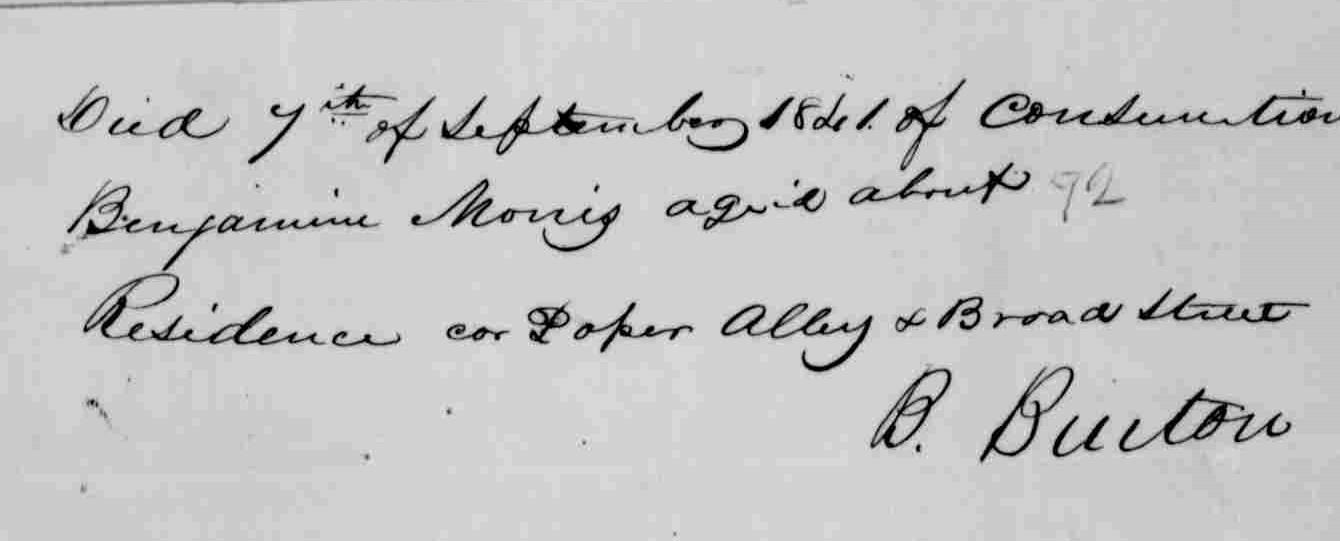 Died 7th of September 1841. of Consumtion
Benjamine Morris aged about 72
Residence cor Poper Alley & Broad Street
B. Burton